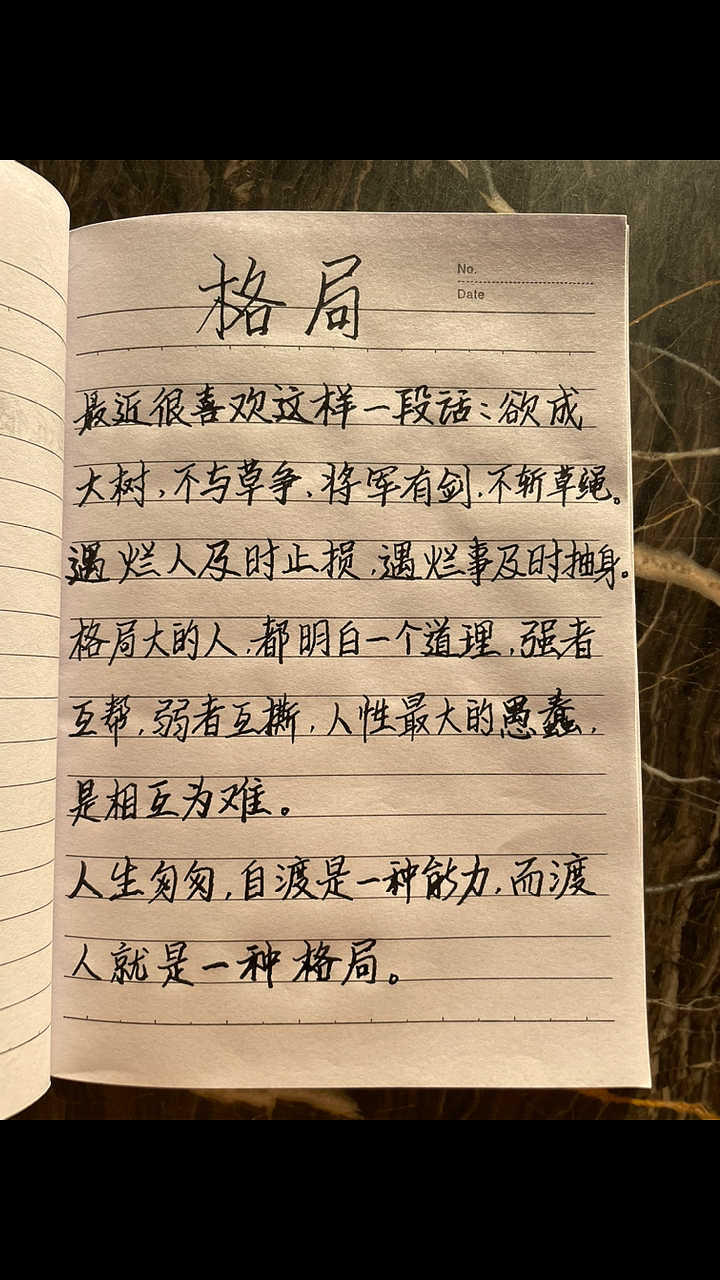 格局
No.
Date
最近很喜欢这样一段话:欲成
大树,不与草争、将军有剑,不斩草绳。
遇烂人及时止损,遇烂事及时抽身。
格局大的人,都明白一个道理,强者
互帮,弱者互撕,人性最大的愚蠢,
是相互为难。
人生匆匆,自渡是一种能力,而渡
人就是一种格局。